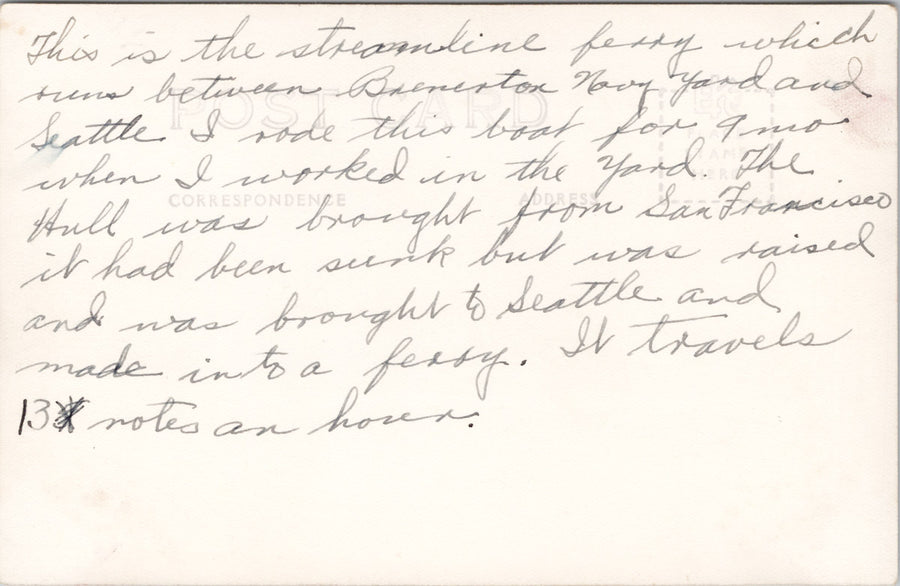 This is the streamline ferry which
runs between Bremerton Navy Yard and
Seattle I rode this boat for 9 mo
when I worked in the Yard. The
Hull was brought from San Francisco
it had been sunk but was raised
and was brought to Seattle and
made into a ferry. It travels
13 notes an hour.
POST CARD
CORRESPONDENCE
ADDRESS
PLACE
STAMP
HERE